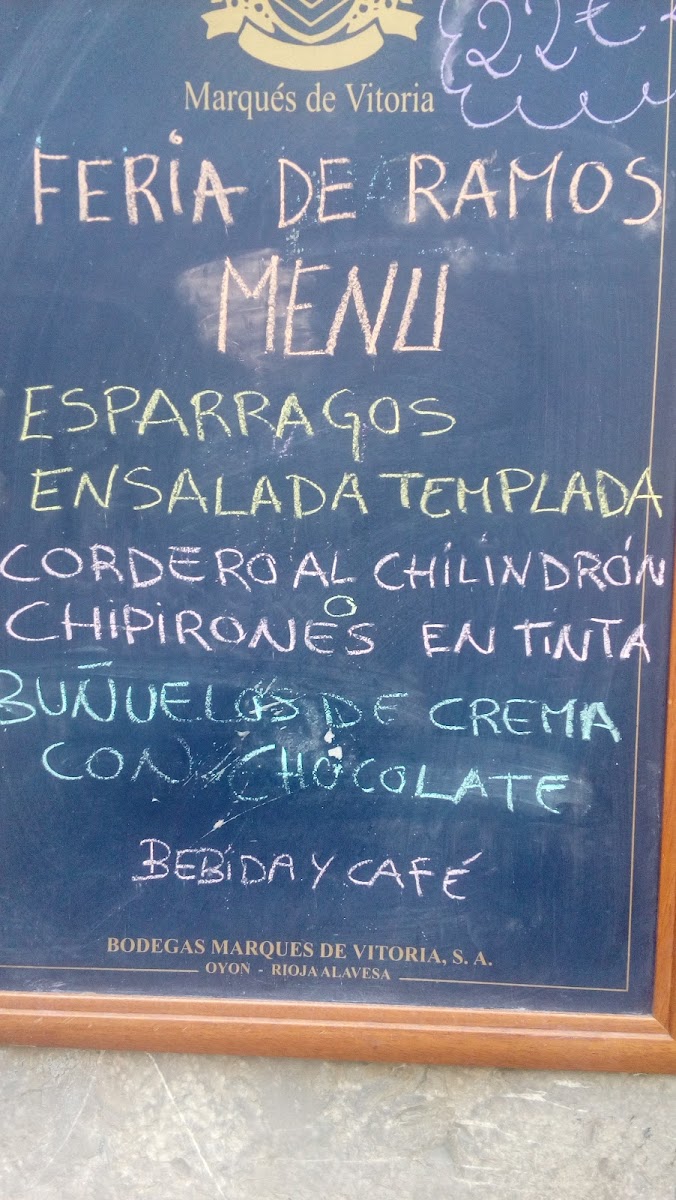 22€
Marqués de Vitoria
FERIA DE RAMOS
MENU
ESPARRAGOS
ENSALADA TEMPLADA
CORDERO AL CHILINDRÓN
O
CHIPIRONES EN TINTA
BUÑUELOS DE CREMA
CON CHOCOLATE
BEBIDA Y CAFÉ
BODEGAS MARQUES DE VITORIA, S. A.
OYON - RIOJA ALAVESA